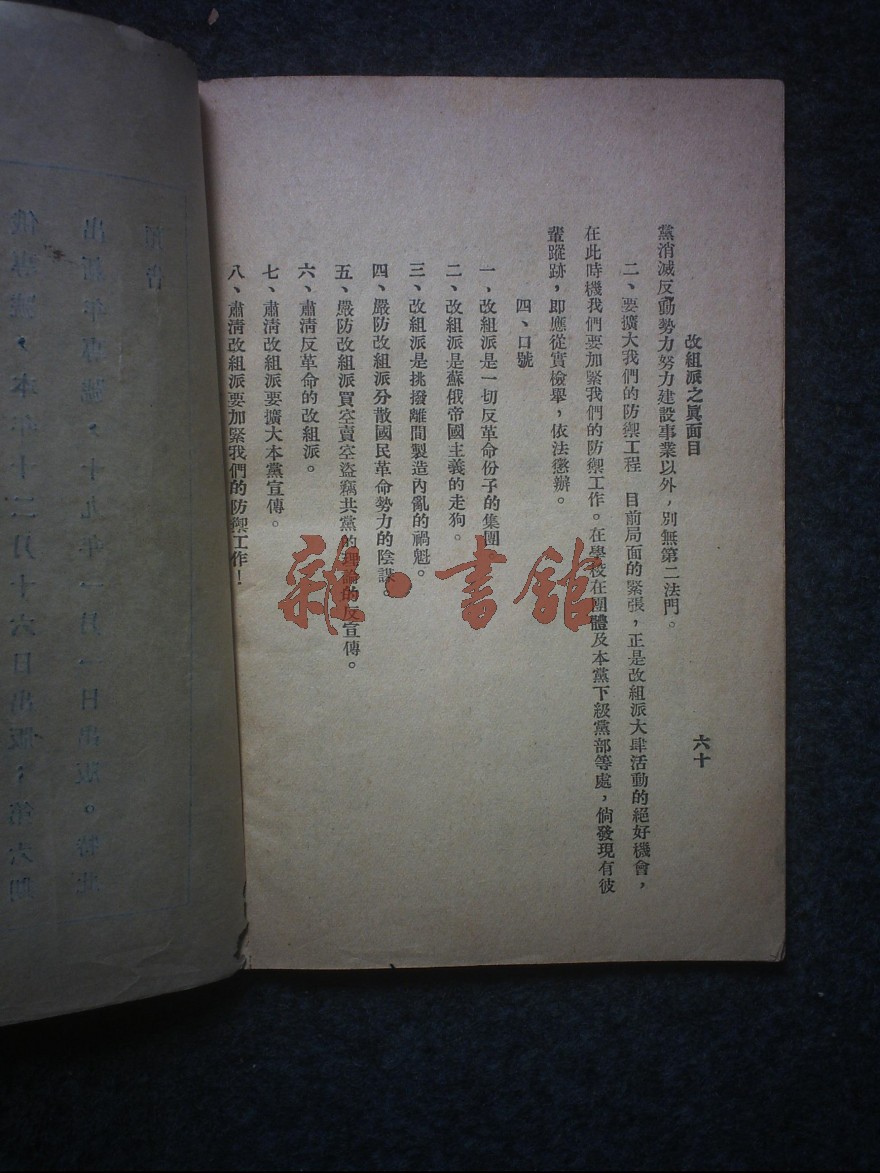 改組派之眞面目
六十
黨消滅反動勢力努力建設事業以外，別無第二法門。
二、要擴大我們的防禦工程　目前局面的緊張，正是改組派大肆活動的絕好機會，
在此時機我們要加緊我們的防禦工作。在學校在團體及本黨下級黨部等處，倘發現有彼
輩蹤跡，卽應從實檢舉，依法懲辦。
四、口號
一、改組派是一切反革命份子的集團
二、改組派是蘇俄帝國主義的走狗。
三、改組派是挑撥離間製造內亂的禍魁。
四、嚴防改組派分散國民革命勢力的陰謀。
五、嚴防改組派買空賣空盜竊共黨的理論的反宣傳。
六、肅淸反革命的改組派。
七、肅淸改組派要擴大本黨宣傳。
八、肅淸改組派要加緊我們的防禦工作！
雜·書館
出新年專號，十九年一月一日出版。特此
俄專號，本年十二月十六日出版，第六期